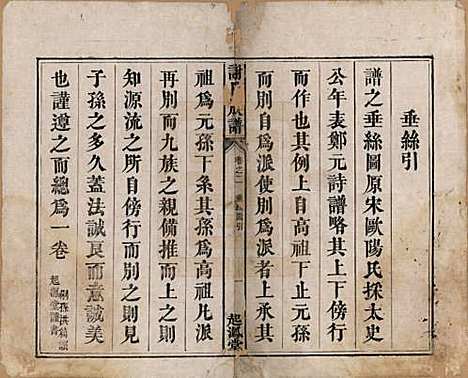 垂絲引
譜之垂絲圖原宋歐陽氏採太史
公年表鄭元詩譜略其上下傍行
而作也其例上自高祖下止元孫
而別自為派使別為派者上承其
謝氏 譜
卷之一 垂絲圖引
起源堂
祖為元孫下系其孫為高祖凡派
再別而九族之親備推而上之則
知源流之所自傍行而列之則見
子孫之多久蓋法誠良而意誠美
也謹遵之而總為一卷